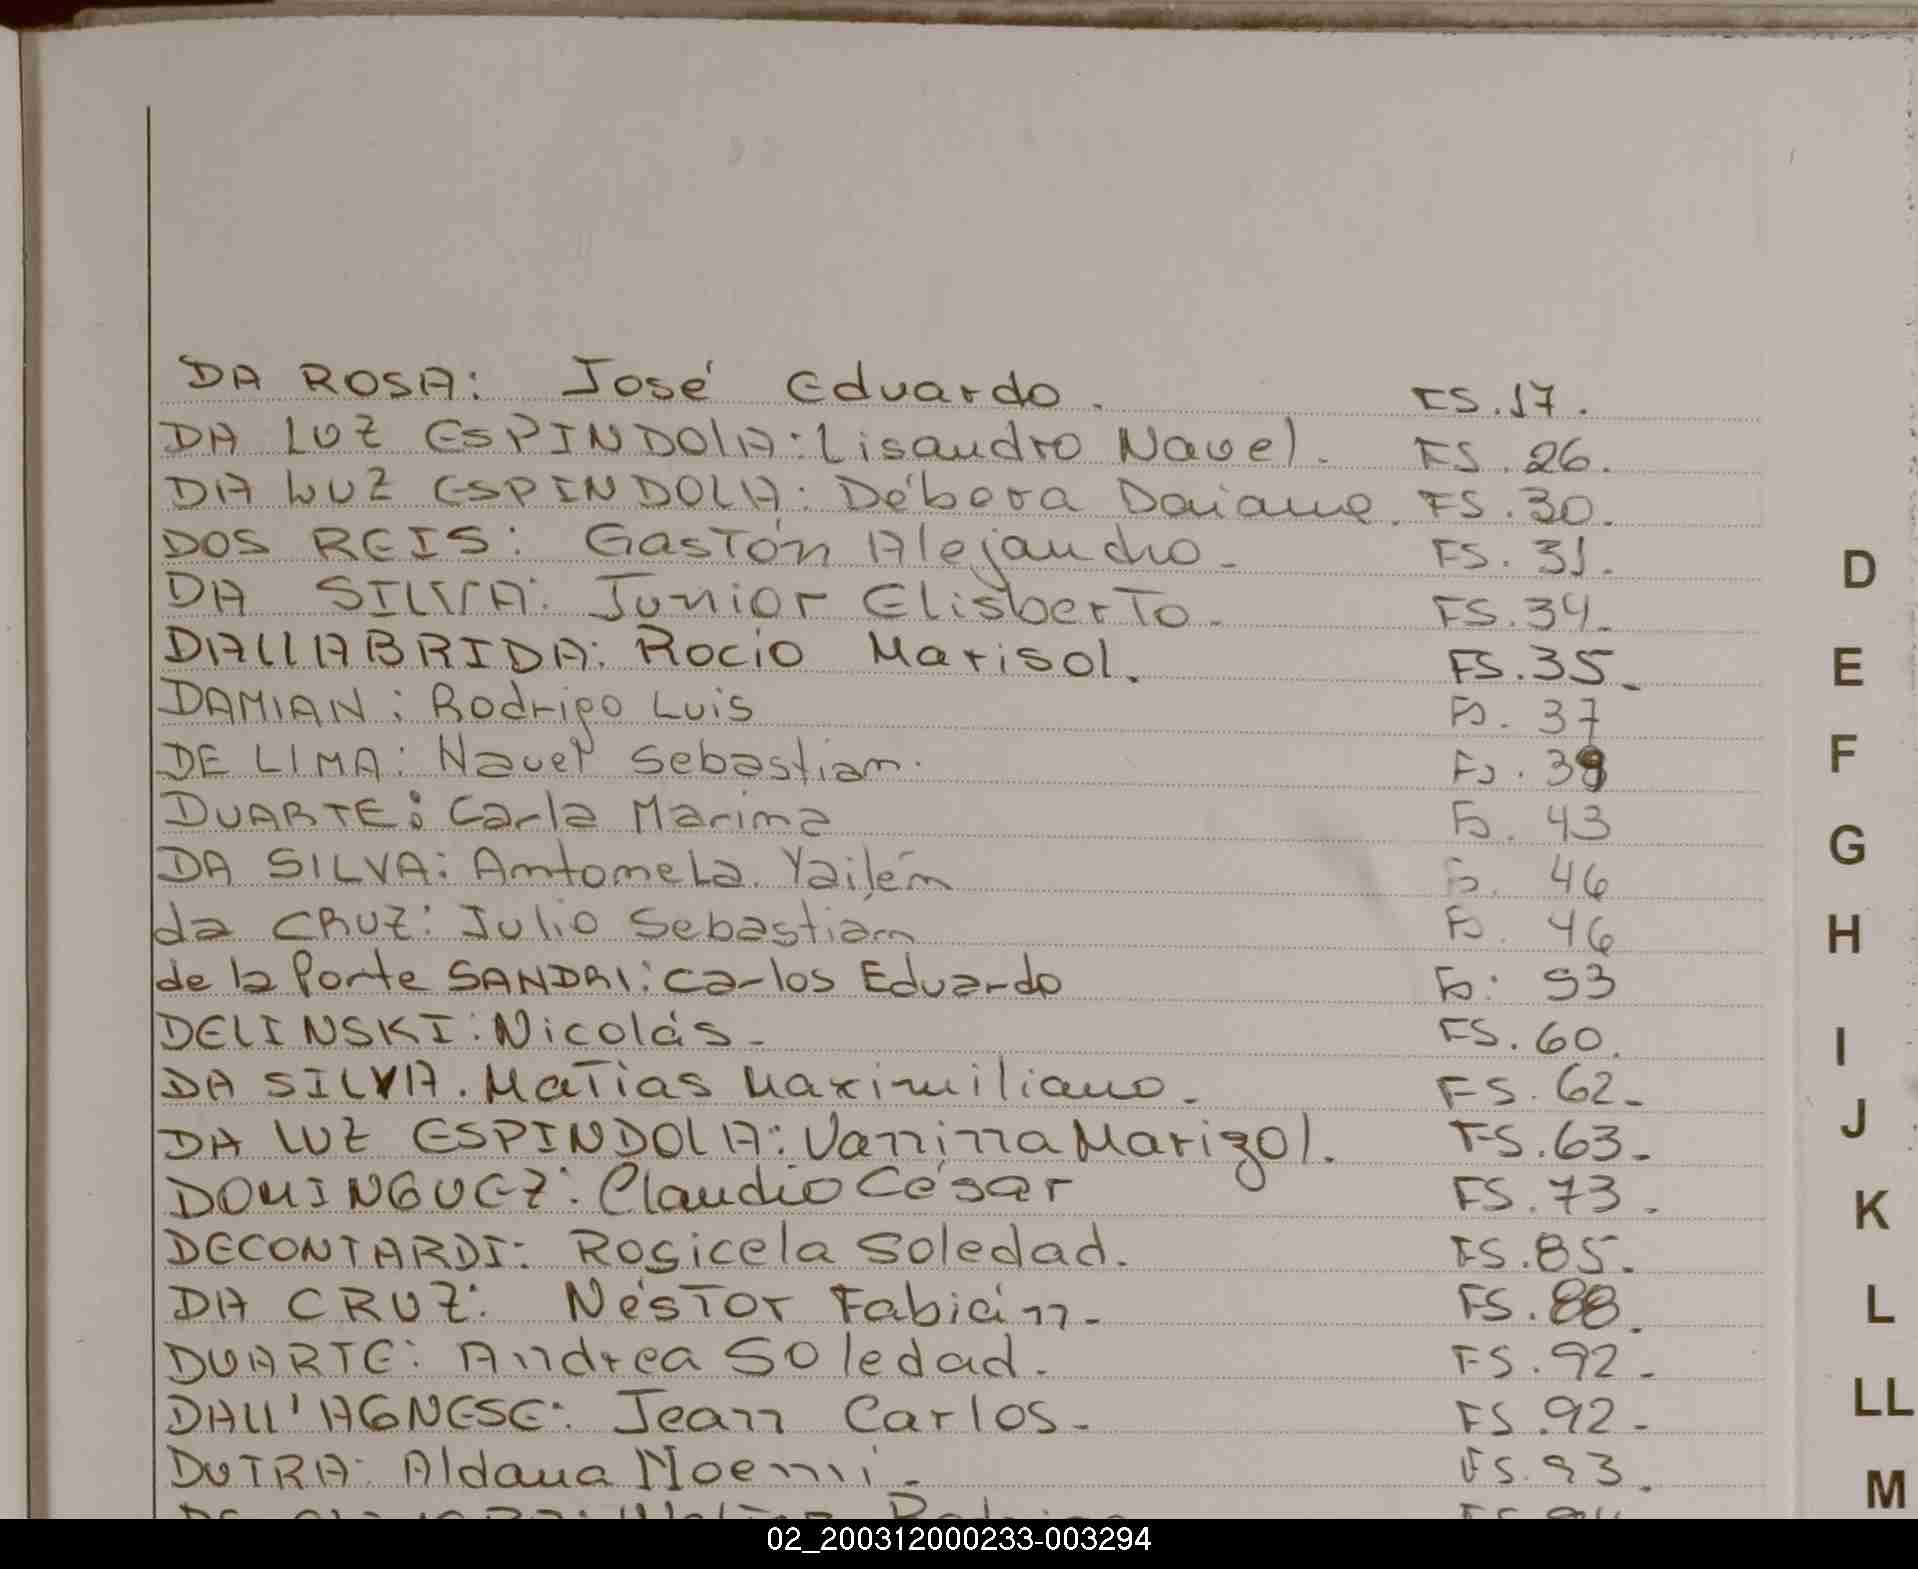 DA ROSA: José Eduardo. FS. 17.
DA LUZ ESPINDOLA: Lisandro Nauel. FS. 26.
DA LUZ ESPINDOLA: Débora Daiane. FS. 30.
DOS REIS: Gastón Alejandro. FS. 31.
DA SILVA: Junior Elisberto. FS. 34.
DALLABRIDA: Rocio Marisol. FS. 35.
DAMIAN: Rodrigo Luis Fs. 37
D
DE LIMA: Nauel Sebastian. Fs. 39
E
DUARTE: Carla Marina Fs. 43
F
DA SILVA: Antonela. Yailén Fs. 46
G
da CRUZ: Julio Sebastian Fs. 46
H
de la Porte SANDRI: Carlos Eduardo Fs: 53
DELINSKI: Nicolás. FS. 60.
I
DA SILVA. Matias Maximiliano. FS. 62.
J
DA LUZ ESPINDOLA: Vanina Marizol. FS. 63.
DOMINGUEZ: Claudio César FS. 73.
K
DECONTARDI: Rosicela Soledad. FS. 85.
DA CRUZ: Néstor Fabián. FS. 88.
L
DUARTE: Andrea Soledad. FS. 92.
DALL'AGNESE: Jean Carlos. FS. 92.
LL
DUTRA: Aldana Noemi. FS. 93.
M
02_200312000233-003294